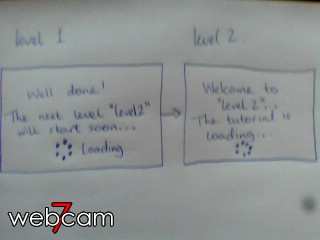 level 1
level 2
Well done!
The next level "level2"
will start soon...
Loading
Welcome to
"level 2"...
The tutorial is
loading...
webcam 7